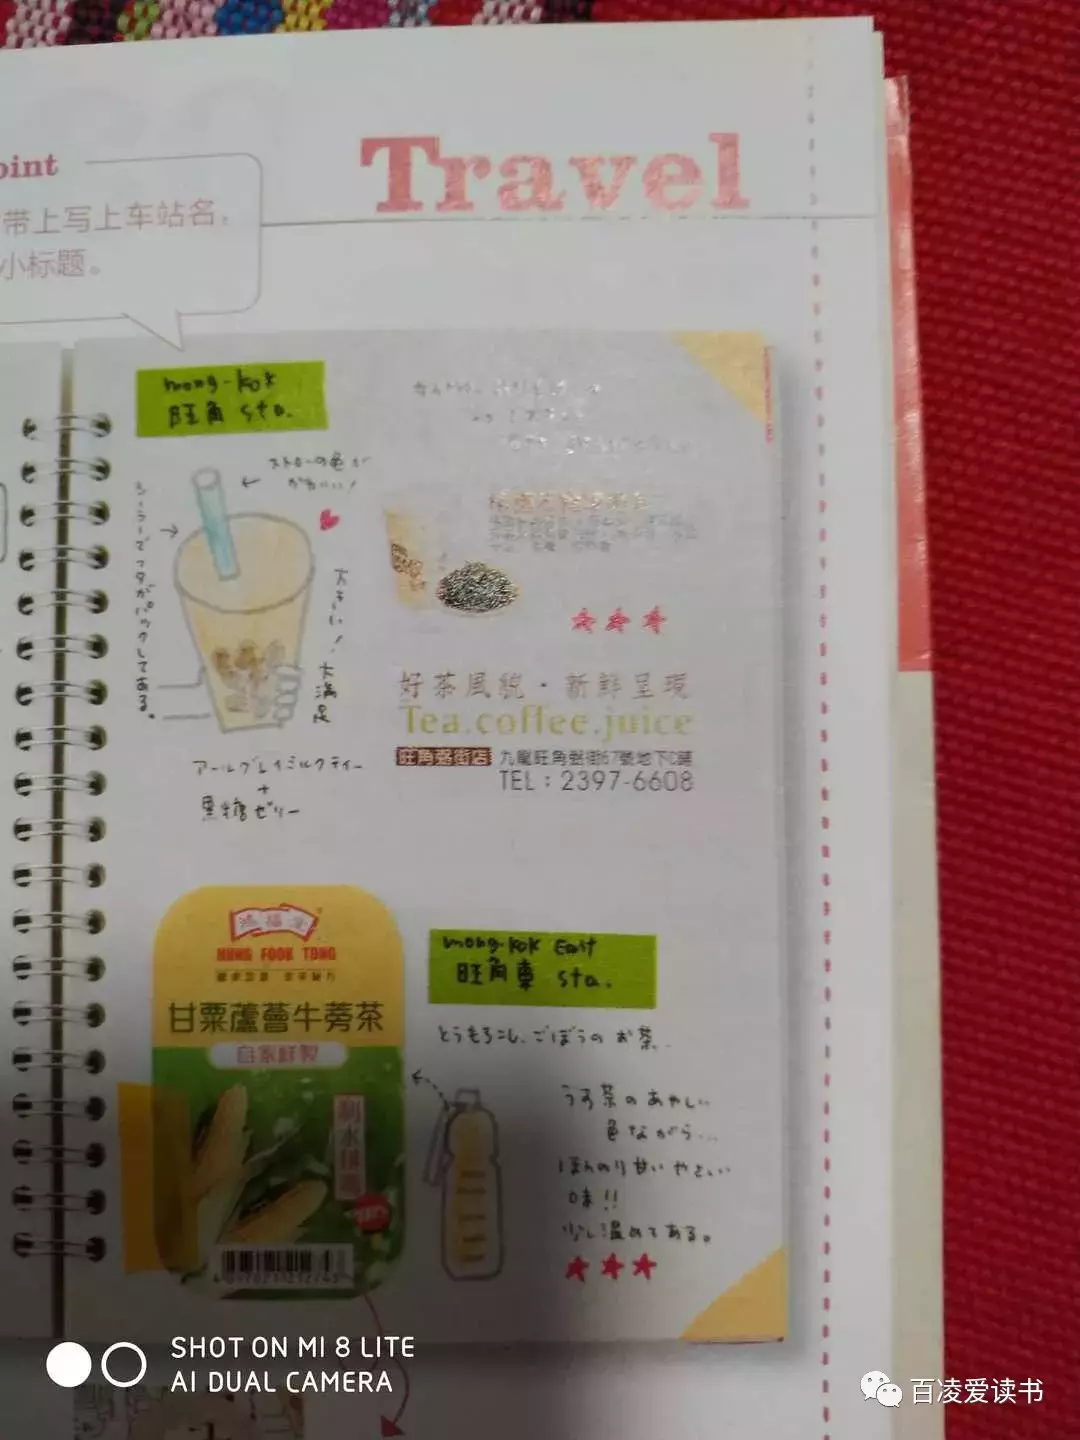 Travel
oint
带上写上车站名，
小标题。
mong-kok
旺角 sta.
ストローの色が
かわいい！
シーラーでフタがパックしてある。
大きい！
大満足
アールグレイミルクティー
+
黒糖ゼリー
好茶風貌·新鮮呈現
Tea.coffee.juice
旺角弼街店 九龍旺角弼街67號地下C鋪
TEL：2397-6608
鴻福堂
HUNG FOOK TONG
甘粟蘆薈牛蒡茶
自家鮮製
利水排毒
mong-kok East
旺角東 sta.
とうもろこし、ごぼうのお茶。
うす茶のあやしい
色ながら…
ほんのり甘いやさしい
味!!
少し温めてある。
SHOT ON MI 8 LITE
AI DUAL CAMERA
百凌爱读书